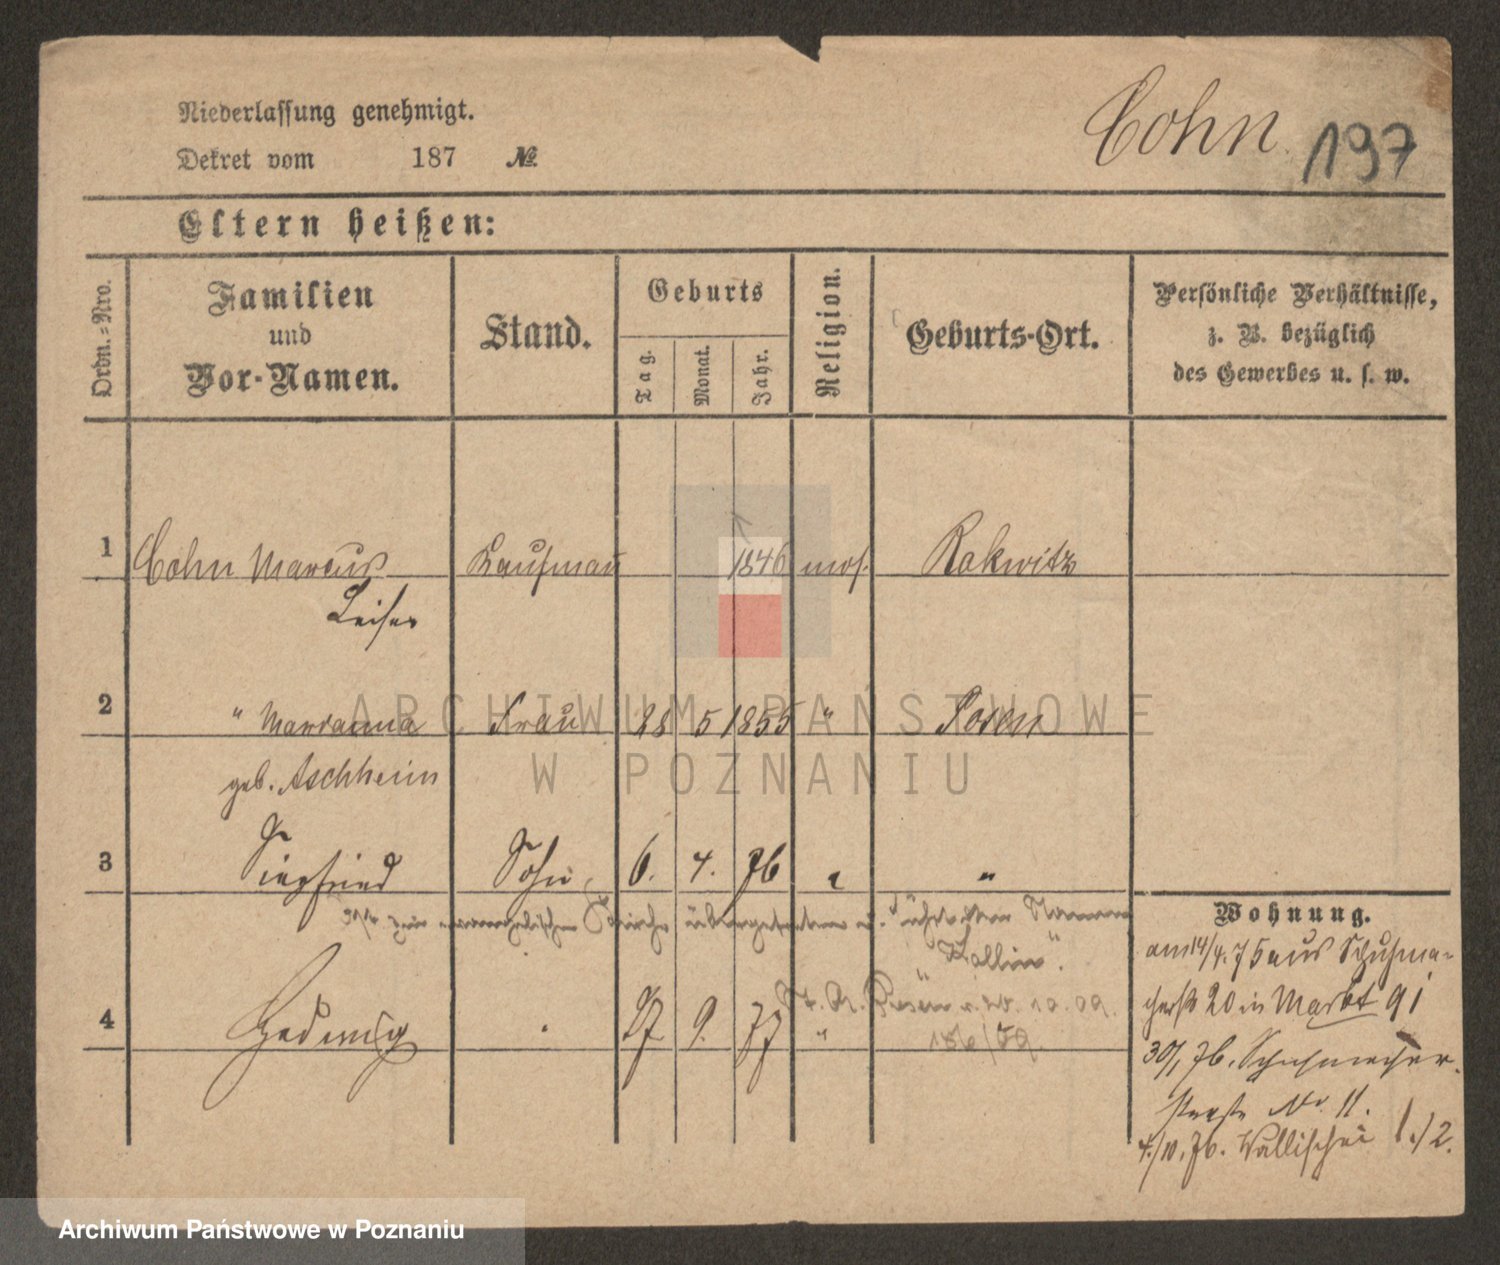 Niederlassung genehmigt.
Dekret vom 187 №
Cohn 197
Eltern heißen:
Ordn.-Nro.
Familien und Vor-Namen.
Stand.
Geburts
Tag.
Monat.
Jahr.
Religion.
Geburts-Ort.
Persönliche Verhältnisse,
z. B. bezüglich
des Gewerbes u. s. w.
1 Cohn Marcus Kaufmann 1846 mos. Rakwitz
Leiser
2 " Marianna Frau 28 5 1855 " Posen
geb. Aschheim
3 Siegfried Sohn 6. 4. 76 " "
zur evangelischen Kirche übergetreten u. führt den Namen
"Kallin".
Posen 10.09.
4 Hedwig 27 9. 77 "
Wohnung.
am 14/4. 75 aus Schuhma-
cherstr 20 in Markt 91
30/1 76. Schuhmacher-
strasse No. 11.
4./10. 76. Wallischei 1./2.
ARCHIWUM PAŃSTWOWE
W POZNANIU
Archiwum Państwowe w Poznaniu